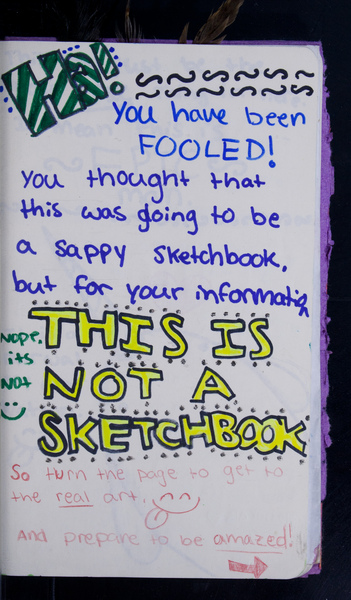 HA!
You have been
FOOLED!
You thought that
this was going to be
a sappy sketchbook,
but for your informatin
THIS IS
NOT A
SKETCHBOOK
nope.
its
not
So turn the page to get to
the real art.
And prepare to be amazed!